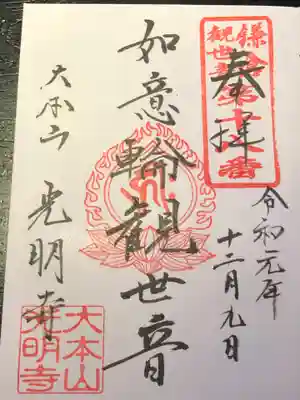 奉拝
鎌倉
観世音第十八番
令和元年
十二月九日
如意輪観世音
大本山 光明寺
大本山
光明寺